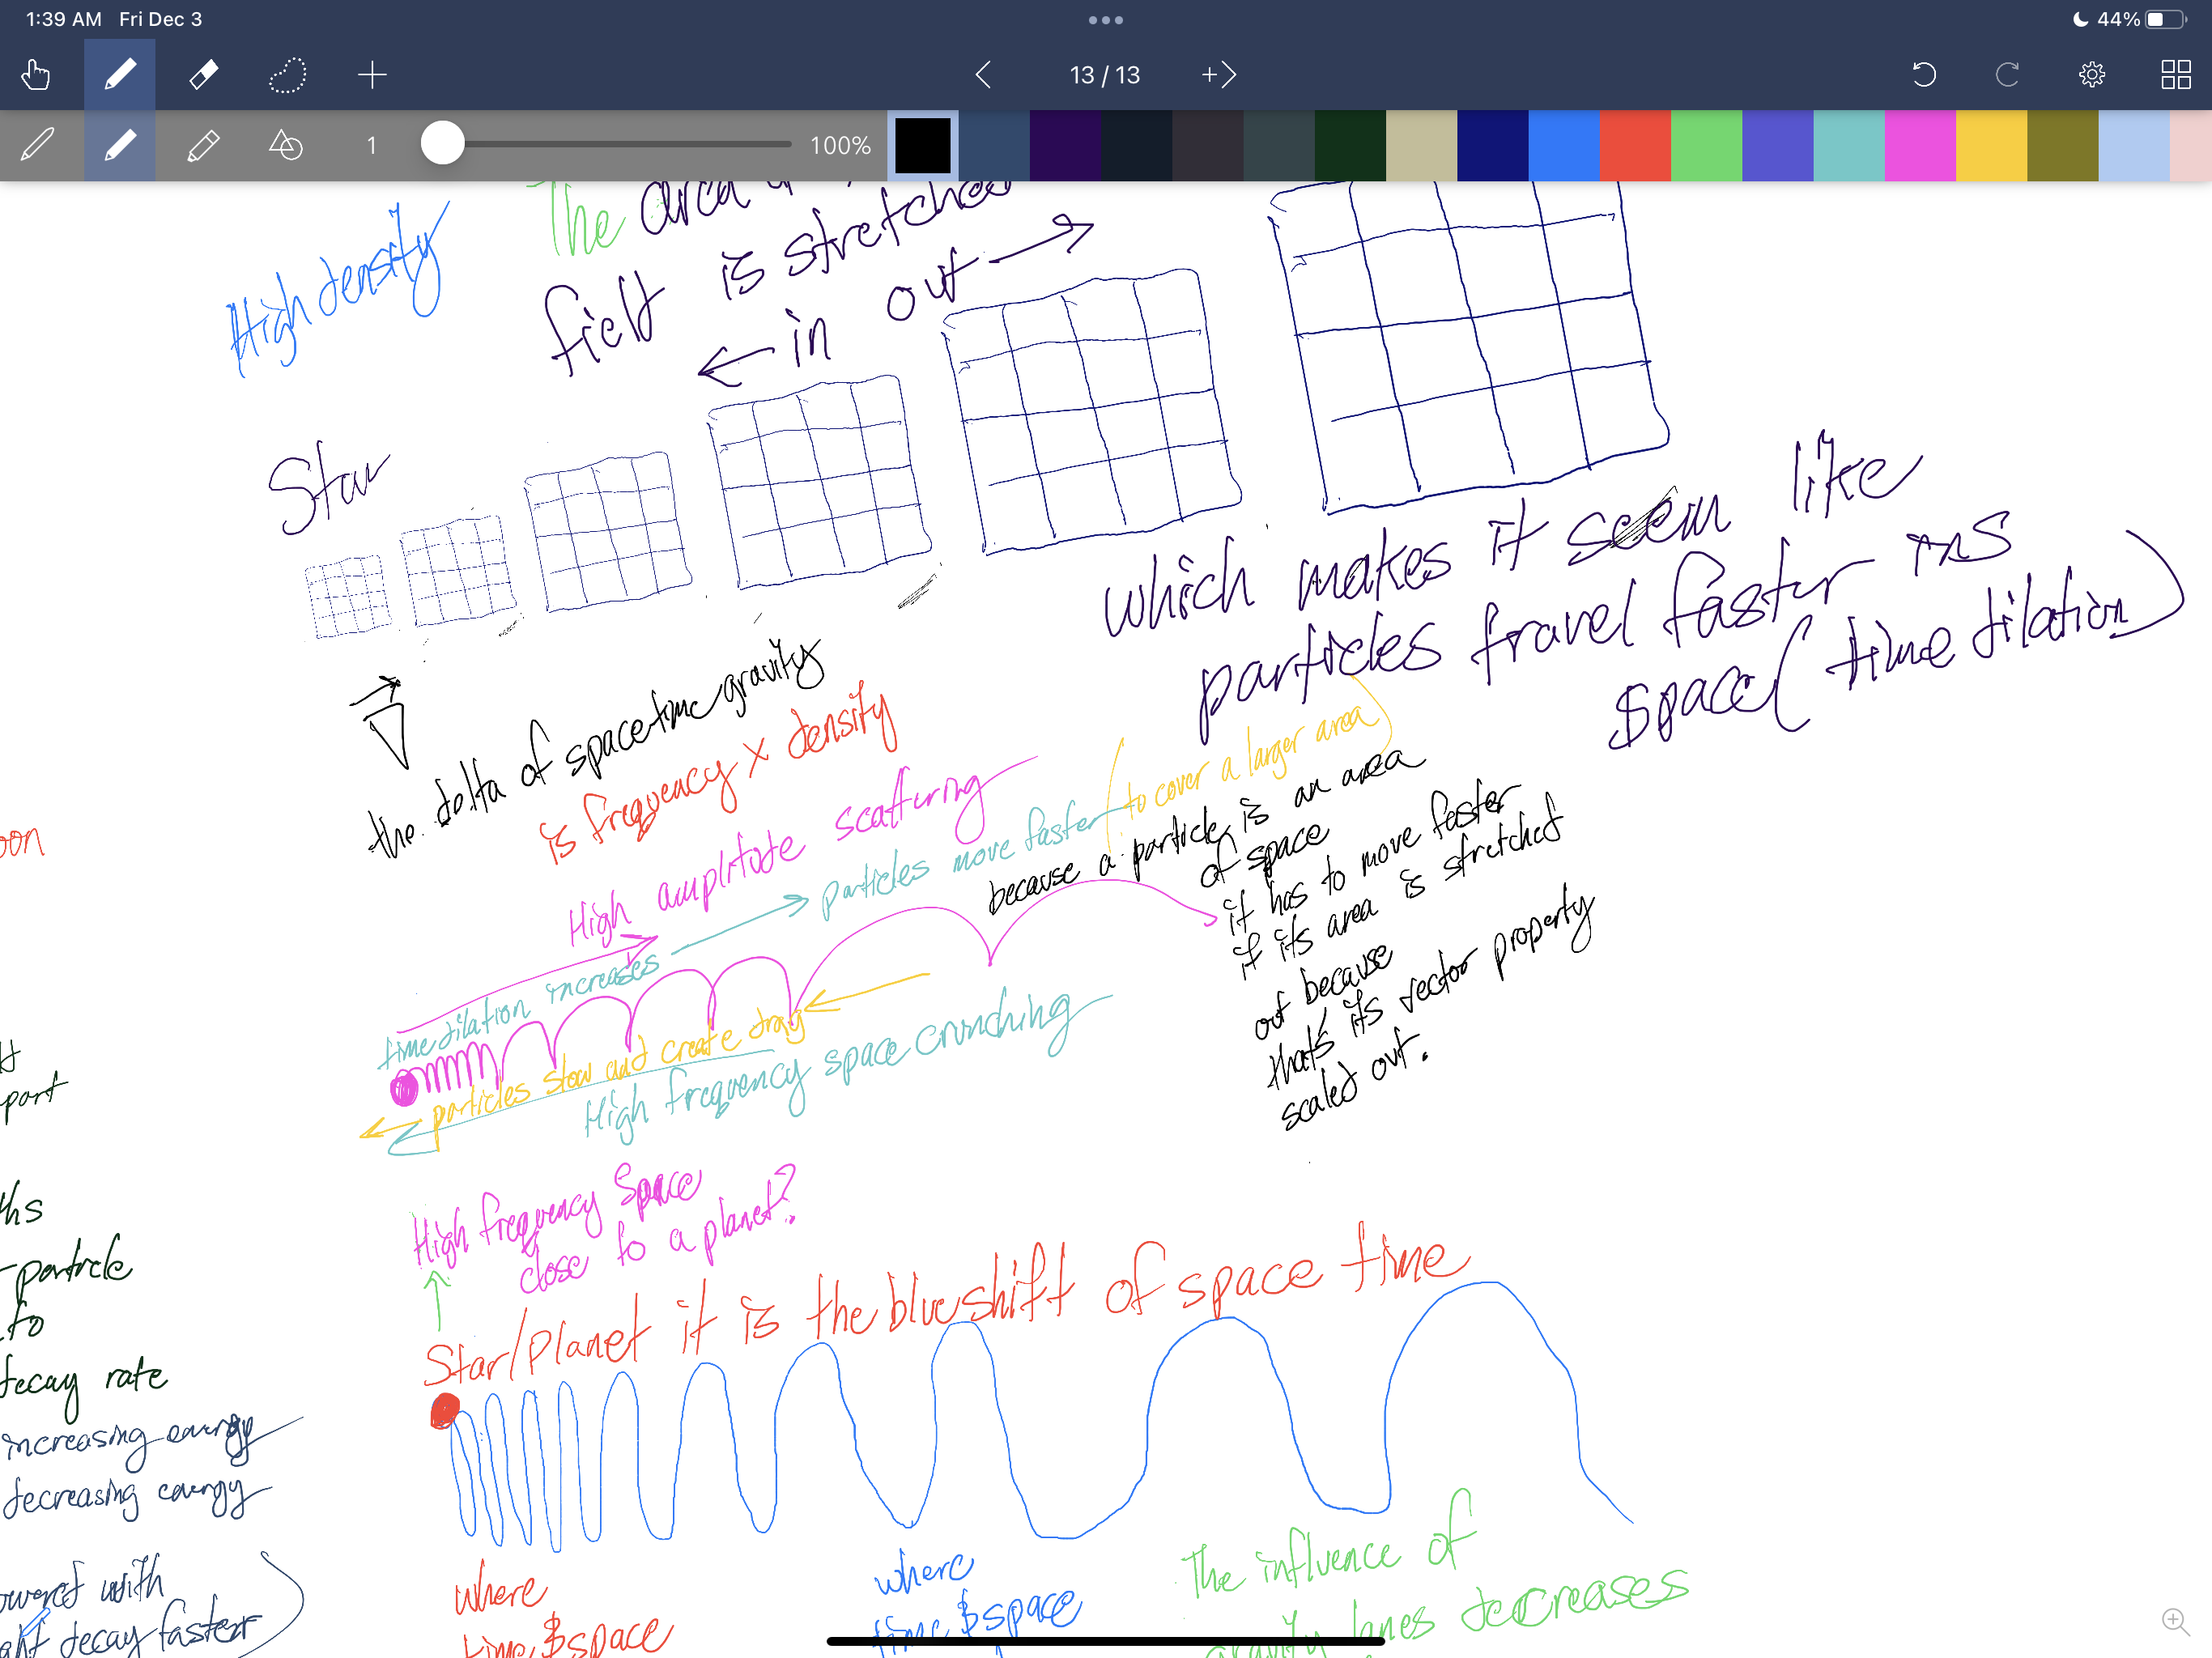 1:39 AM Fri Dec 3
44%
13 / 13
1
100%
The area
field is stretched
← in out →
High density
Star
which makes it seem like
particles travel faster
space (time dilation)
the delta of spacetime gravity
is frequency x density
High amplitude scattering
particles move faster (to cover a larger area)
because a particle is an area
of space
it has to move faster
if its area is stretched
out because
that's its vector property
scaled out.
time dilation increases
particles slow and create drag
High frequency space crunching
High frequency space
close to a planet?
Star/Planet it is the blueshift of space time
where
time $ space
where
time $ space
The influence of
gravity lanes decreases
oon
part
ths
particle
to
decay rate
increasing energy
decreasing energy
owered with
decay faster